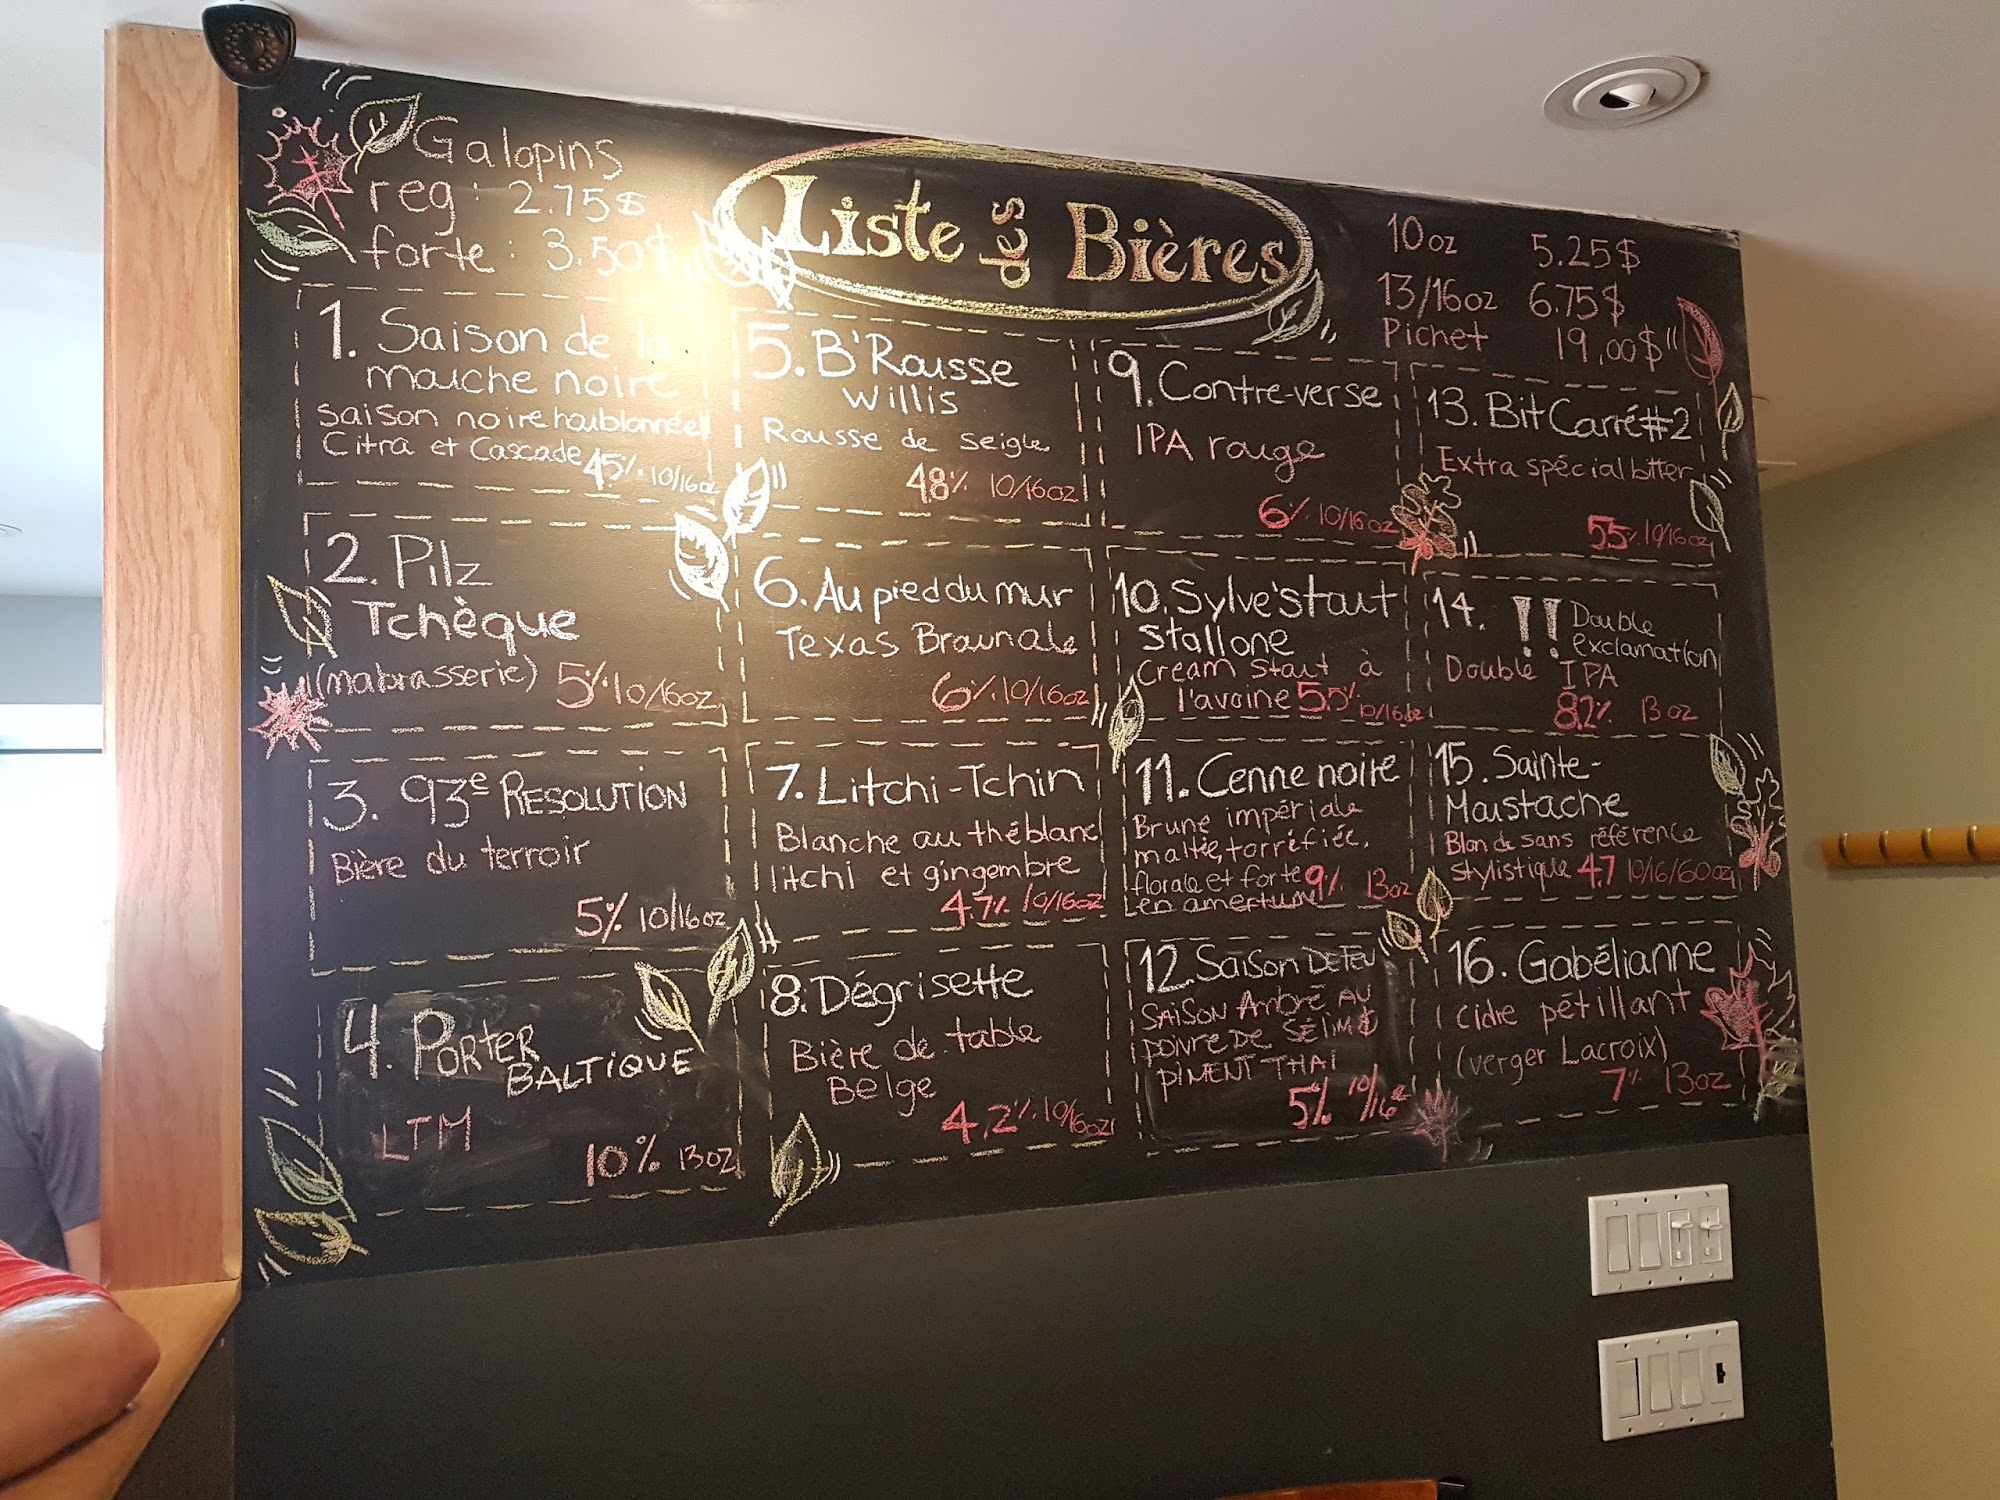 Galopins
reg : 2.75$
forte : 3.50$
Liste des Bières
10oz 5.25$
13/16oz 6.75$
Pichet 19,00$
1. Saison de la
mouche noire
saison noire houblonnée
Citra et Cascade 4.5% 10/16oz
2. Pilz
Tchèque
(mabrasserie) 5% 10/16oz
3. 93e RESOLUTION
Bière du terroir
5% 10/16oz
4. PORTER
BALTIQUE
LTM
10% 13oz
5. B'Rousse
Willis
Rousse de seigle
4.8% 10/16oz
6. Au pied du mur
Texas Brounale
6% 10/16oz
7. Litchi-Tchin
Blanche au thé blanc
litchi et gingembre
4.7% 10/16oz
8. Dégrisette
Bière de table
Belge
4,2% 10/16oz
9. Contre-verse
IPA rouge
6% 10/16oz
10. Sylve'stout
stallone
Cream stout à
l'avoine 5.5% 10/16oz
11. Cenne noire
Brune impériale
maltée, torréfiée,
florale et forte 9% 13oz
en amertume
12. SAISON DE FEU
SAISON AMBRÉ AU
POIVRE DE SÉLIM &
PIMENT THAI
5% 10/16oz
13. Bit Carré #2
Extra spécial bitter
5.5% 10/16oz
14. !! Double
exclamation
Double IPA
8.2% 13oz
15. Sainte-
Moustache
Blonde sans référence
stylistique 4.7 10/16/60oz
16. Gabélianne
Cidre pétillant
(verger Lacroix)
7% 13oz